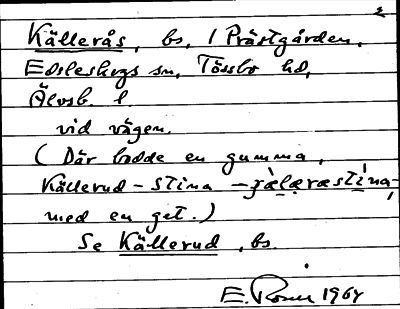 Källerås, bs, / Prästgården,
Edsleskogs sn, Tössbo hd,
Älvsb. l.
vid vägen.
( Där bodde en gumma,
Källerud - Stina -
med en get.)
Se Källerud, bs.
E. 1964